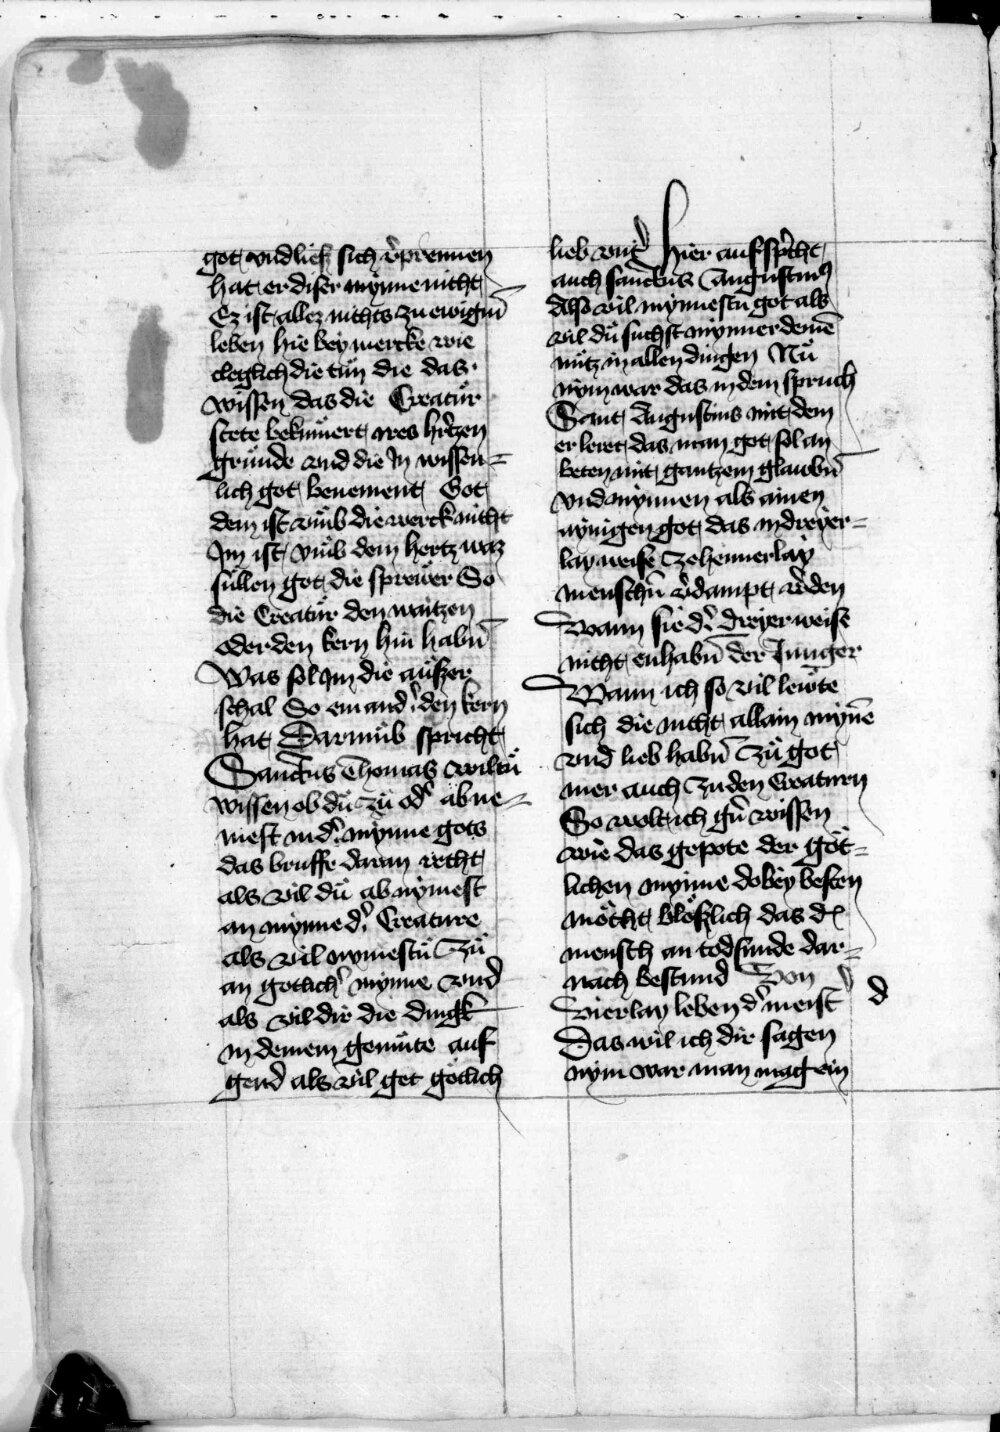 got vnd lieſſ sich v'prennen
hat er diser mynne nicht
Ez ist allez nichts zu ewigm̄
leben hie bey mercke wie
cleglich die tün die das
wissen das die Creatür
stete bekümert ires hr̄tzen
gründe vnd die In wissen=
lich got benement Got
dem ist vmb die werck nicht
Im ist vmb dem hertz waz
süllen got die sprewer So
die Creatür den waitzen
oder den kern hin habn̄
Was sol Im die aüßer
schal So ein and' den kern
hat Darumb spricht
Sanctus Thomas wiltu
wissen ob dü zü od' abne=
mest in d' mynne gots
das bruffe daran recht
als vil dü ab nymest
an mynne d' Creature
als vil nymestu Zü
an gotlich' mynne vnd
als vil dir die dingk
in deinem gemüte auf
gend als vil get götlich
lieb vnt' Hier auf sp'cht
auch sanctus Augustin9
Also vil mynnestu got als
vil dü suchst mynner deinē
nütz in allen dingen Nü
nym war das in dem spruch
Sant Augustins mit dem
er leret das man got sol an
beten mit gantzem glawbn̄
vnd mynnen als ainen
aynigen got das in dreyer=
lay weise Zehennerlay
menschn̄ v'dampt w'den
Wann sie d' dreyer weise
nicht enhabn̄ der Iunger
Wann ich so vil lewte
sich die nicht allain mynē
vnd lieb habn̄ Zü got
mer auch zu den Creaturn
So wolt ich gn̄ wissen
wie das gepote der göt=
lichen mynne dobey besten
möcht blößlich das d'
mensch an todsunde dar=
nach bestund Von
Vierlay leben d' meist' d
Das wil ich dir sagen
nym war man mag ein